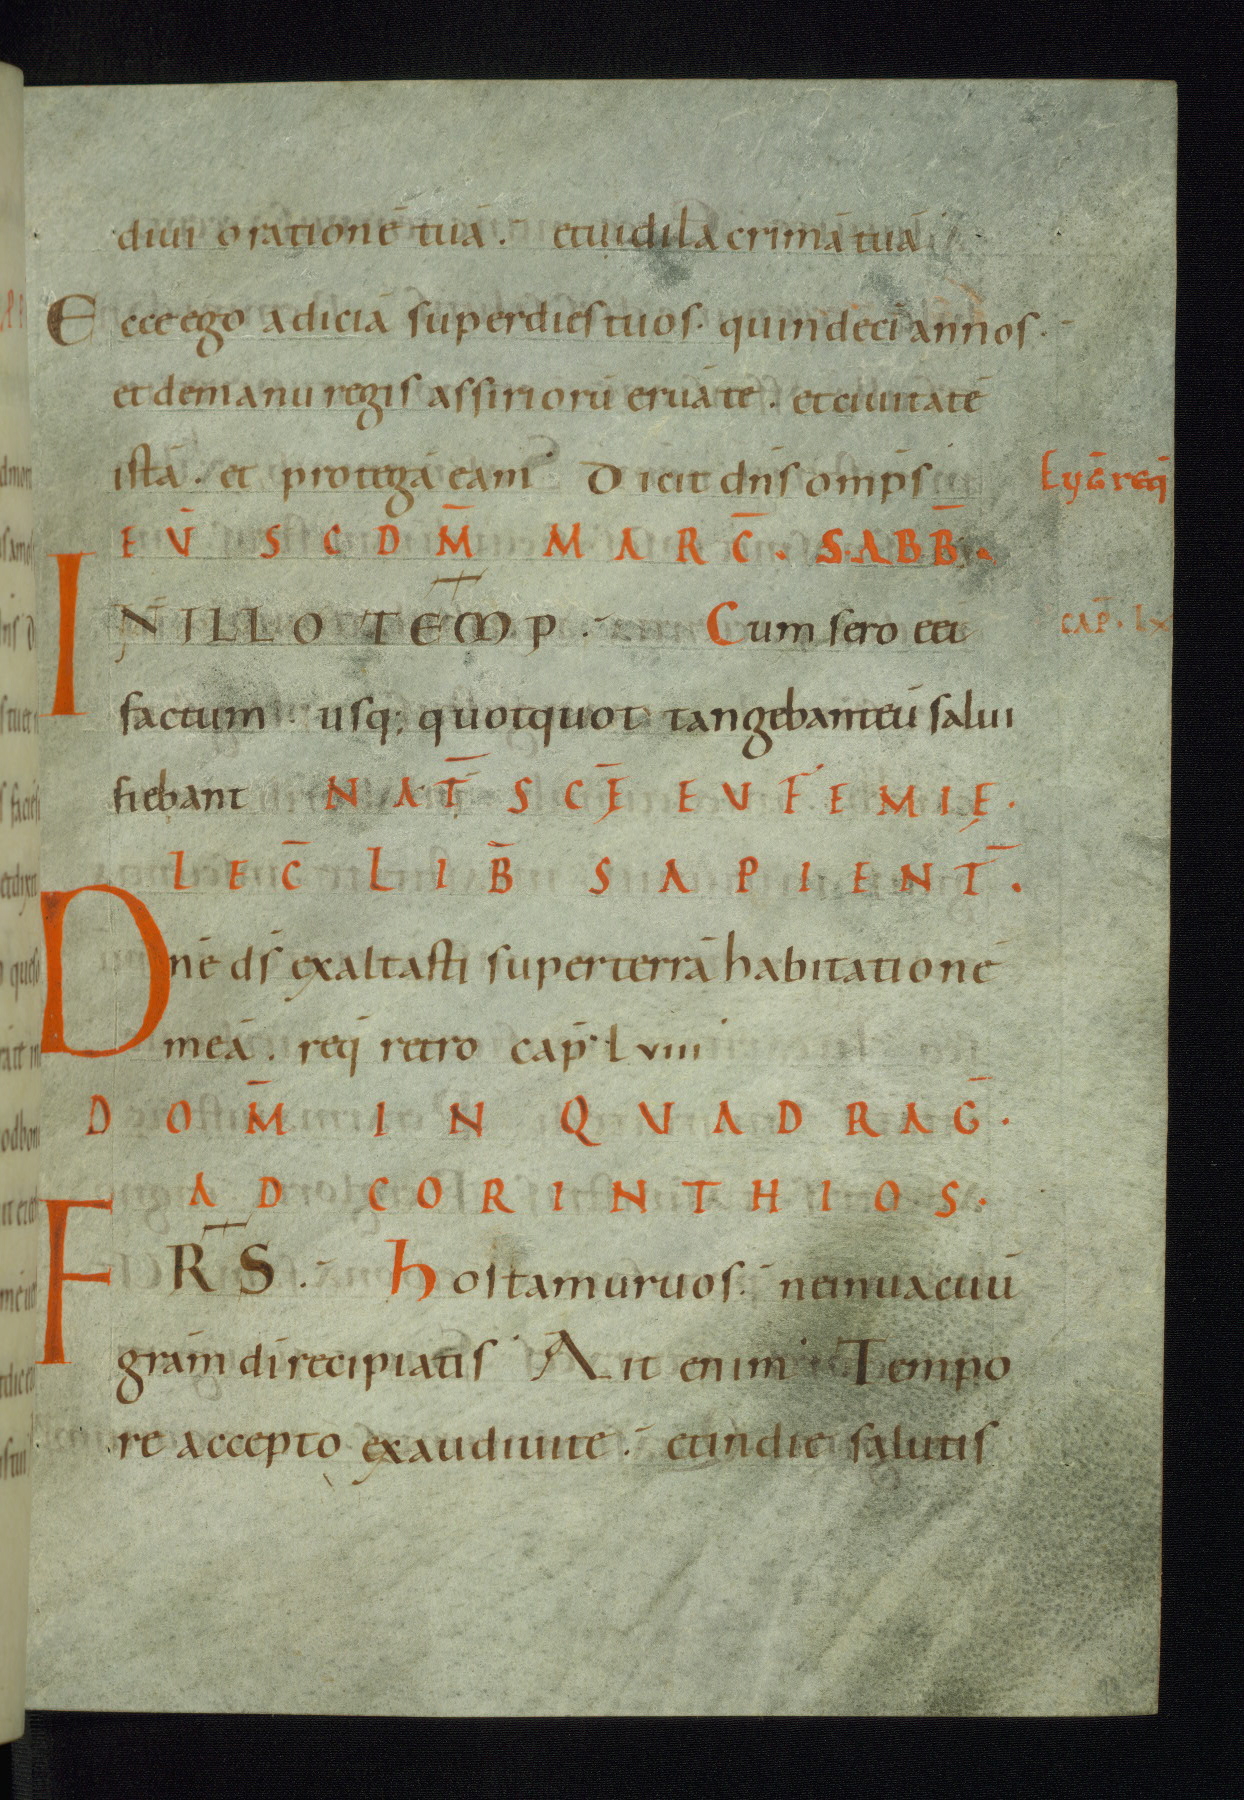 diui orationē tuā. et uidi lacrimā tuā
Ecce ego adiciā super dies tuos. quindecī annos.
et de manu regis assiriorū eruā te. et ciuitatē
istā. et protegā eam Dicit dn̄s omp̄s
EV̄ SCDM̄ MARC̄. SABB̄.
IN ILLO TEM̄P. Cum sero
CAP̄. LX
factum. usq; quotquot tangebant eū salui
fiebant NAT̄ SCĒ EVFEMIE.
LEC̄ LIB̄ SAPIENT̄.
Dnē ds̄ exaltasti super terrā habitationē
meā. req̄ retro cap̄ lviii
DOM̄ IN QVADRAḠ.
AD CORINTHIOS.
FRS̄. hostamur uos. ne in uacuū
gram̄ dī recipiatis Ait enim Tempo
re accepto exaudiui te. et in die salutis